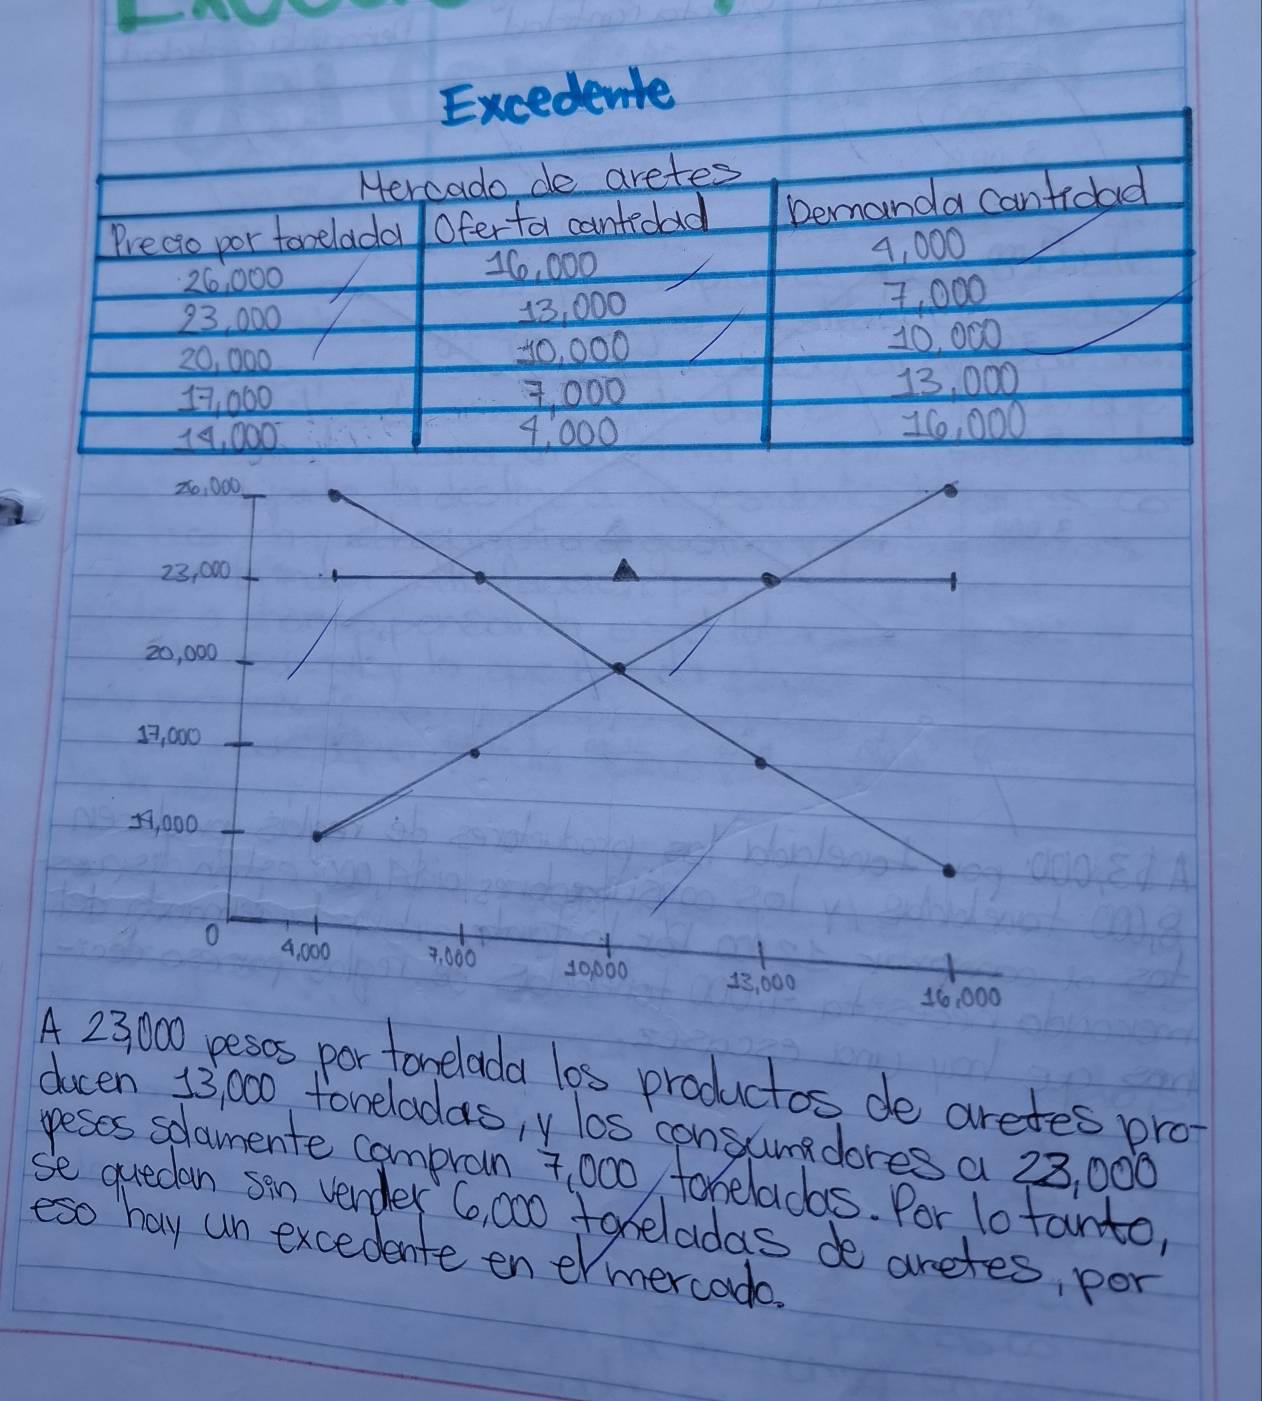 Excedente
Mercado de aretes
Precio por tonelada Oferta cantidad Demanda cantidad
26,000 16,000 4,000
23,000 13,000 7,000
20,000 10,000 10,000
17,000 7,000 13,000
14,000 4,000 16,000
26,000
23,000
20,000
17,000
14,000
0 4,000 7,000 10,000 13,000 16,000
A 23,000 pesos por tonelada los productos de aretes pro-
ducen 13,000 toneladas, y los consumidores a 23,000
pesos solamente compran 7,000 toneladas. Por lo tanto,
se quedan sin vender 6,000 toneladas de aretes, por
eso hay un excedente en el mercado.